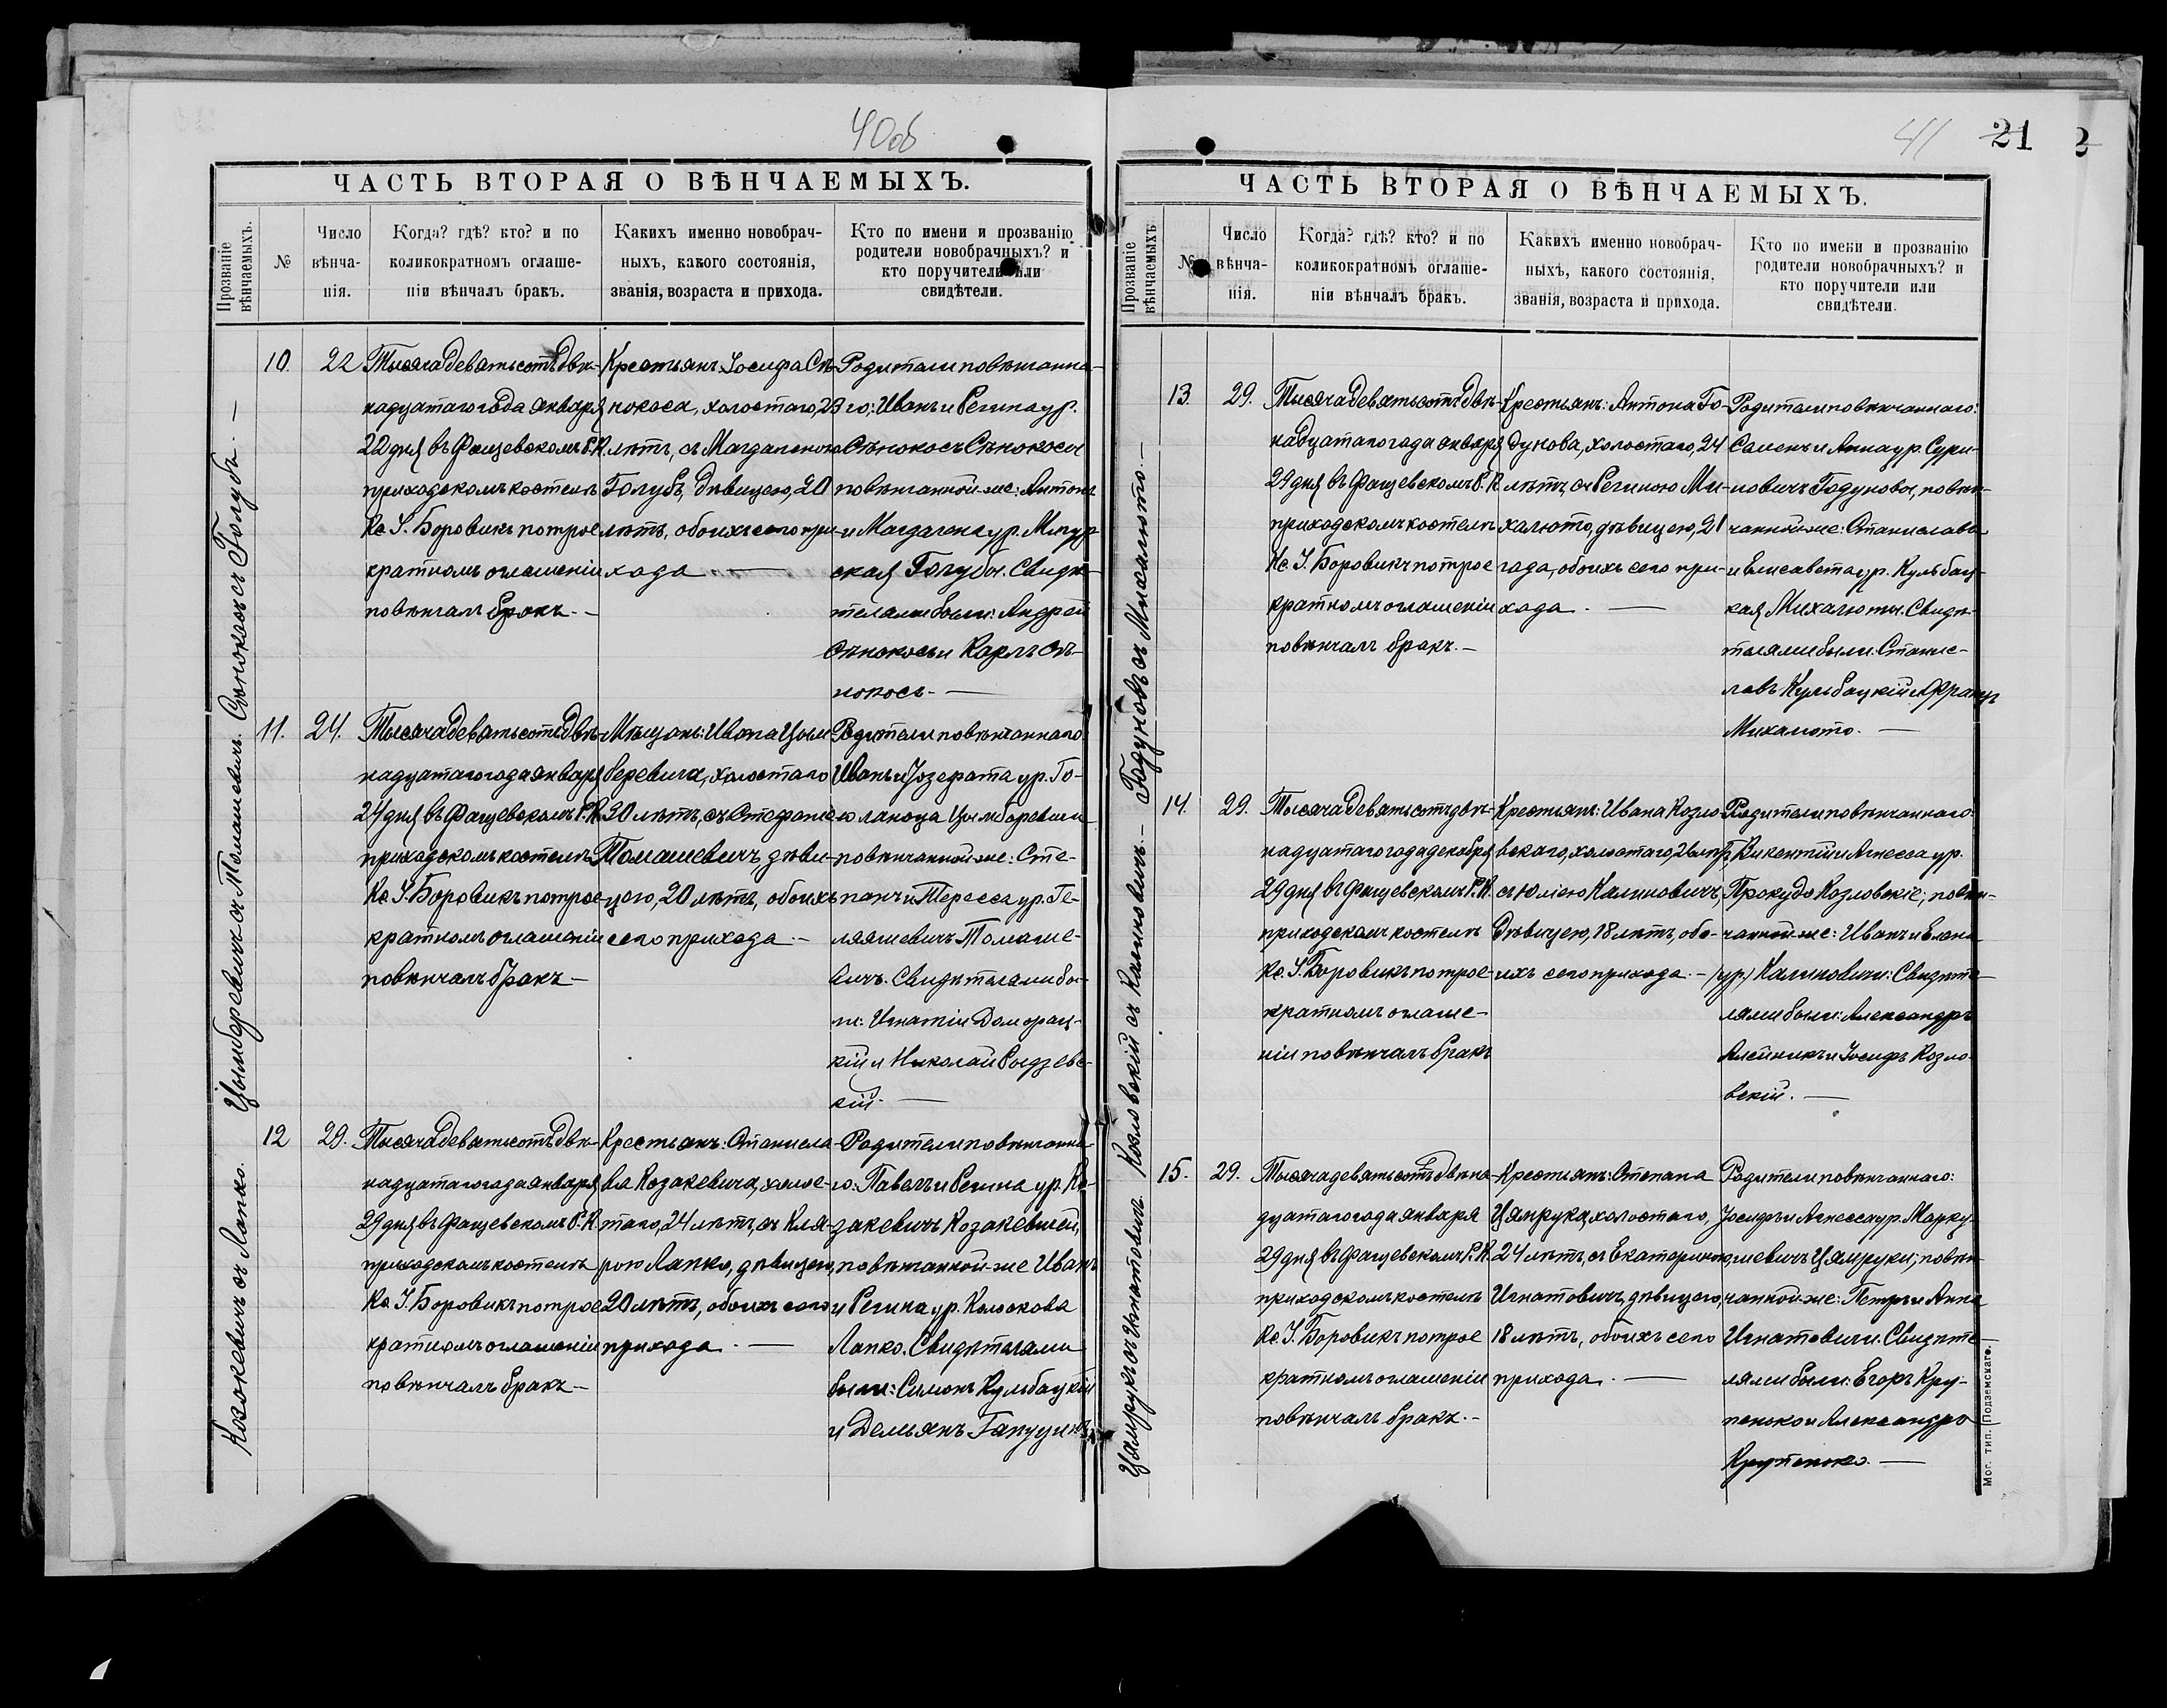 40об
ЧАСТЬ ВТОРАЯ О ВѢНЧАЕМЫХЪ.
Прозваніе вѣнчаемыхъ.
№
Число вѣнча-
нія.
Когда? гдѣ? кто? и по
коликократномъ оглаше-
ніи вѣнчалъ бракъ.
Какихъ именно новобрач-
ныхъ, какого состоянія,
званія, возраста и прихода.
Кто по имени и прозванію
родители новобрачныхъ? и
кто поручители или
свидѣтели.
Сѣнокосъ съ Голубъ. —
10.
22
Тысяча девятьсотъ двѣ-
надцатаго года января
22 дня въ Фащевскомъ Р. К.
приходскомъ костелѣ
Кс. І. Боровикъ по трое
кратномъ оглашеніи
повѣнчалъ бракъ. —
Крестьянъ: Іосифа Сѣ-
нокоса, холостаго, 23
лѣтъ, съ Магдаленою
Голубъ, дѣвицею, 20
лѣтъ, обоихъ сего при-
хода —
Родители повѣнчанна-
го: Иванъ и Регина ур.
Сѣнокосъ Сѣнокосы
повѣнчанной-же: Антонъ
и Магдалена ур.
ская Голубы. Свидѣ-
телями были: Андрей
Сѣнокосъ и Карлъ Сѣ-
нокосъ. —
Цымборевичъ съ Томашевичъ.
11.
24.
Тысяча девятьсотъ двѣ-
надцатаго года января
24 дня въ Фащевскомъ Р. К.
приходскомъ костелѣ
Кс. І. Боровикъ по трое-
кратномъ оглашеніи
повѣнчалъ бракъ —
Мѣщанъ: Ивана Цым
беревича, холостаго
30 лѣтъ, съ Стефаніею
Томашевичъ, дѣви-
цею, 20 лѣтъ, обоихъ
сего прихода. —
Родители повѣнчаннаго:
Иванъ и Іозефата ур. Го-
Цымборевичи
повѣнчанной-же: Сте-
панъ и Тересса ур. Ге-
ляшевичъ Томаше-
вичъ. Свидѣтелями бы-
ли: Игнатій Доморац-
кій и Николай Рыдзев-
кій. —
Козакевичъ съ Лапко.
12
29.
Тысяча девятьсотъ двѣ-
надцатаго года января
29 дня въ Фащевскомъ Р. К.
приходскомъ костелѣ
Кс. І. Боровикъ по трое
кратномъ оглашеніи
повѣнчалъ бракъ —
Крестьянъ: Станисла-
ва Козакевича, холос-
таго, 24 лѣтъ, съ Кля-
рою Лапко, дѣвицею,
20 лѣтъ, обоихъ сего
прихода. —
Родители повѣнчанна-
го: Павелъ и Регина ур. Ко-
закевичъ Козакевичи,
повѣнчанной-же Иванъ
и Регина ур. Колокова
Лапко. Свидѣтелями
были: Симонъ Кульбацкій
и Демьянъ
41
21
2
ЧАСТЬ ВТОРАЯ О ВѢНЧАЕМЫХЪ.
Прозваніе вѣнчаемыхъ.
№
Число
вѣнча-
нія.
Когда? гдѣ? кто? и по
коликократномъ оглаше-
ніи вѣнчалъ бракъ.
Какихъ именно новобрач-
ныхъ, какого состоянія,
званія, возраста и прихода.
Кто по имени и прозванію
родители новобрачныхъ? и
кто поручители или
свидѣтели.
Годуновъ съ Михалюто. —
13.
29.
Тысяча девятьсотъ двѣ-
надцатаго года января
29 дня въ Фащевскомъ Р. К.
приходскомъ костелѣ
Кс. І. Боровикъ по трое
кратномъ оглашеніи
повѣнчалъ бракъ. —
Крестьянъ: Антона Го-
дунова, холостаго, 24
лѣтъ, съ Региною Ми-
халюто, дѣвицею, 21
года, обоихъ сего при-
хода. —
Родители повѣнчаннаго:
Семенъ и Анна ур. Сури-
новичъ Годуновы, повѣн-
чанной-же: Станиславъ
и Елисавета ур. Кульбац-
кая Михалюты. Свидѣ-
телями были: Станис-
лавъ Кульбацкій и Францъ
Михалюто. —
Козловскій съ Калиновичъ. —
14.
29.
Тысяча девятьсотъ двѣ-
надцатаго года декабря
29 дня въ Фащевскомъ Р. К.
приходскомъ костелѣ
Кс. І. Боровикъ по трое-
кратномъ оглаше-
ніи повѣнчалъ бракъ
Крестьянъ: Ивана Козло-
вскаго, холостаго, 26 лѣтъ,
съ Юліею Калиновичъ,
дѣвицею, 18 лѣтъ, обо-
ихъ сего прихода. —
Родители повѣнчаннаго:
Викентій и Агнесса ур.
Прокудо Козловскіе; повѣн-
чанной-же: Иванъ и Елена
(ур.) Калиновичи. Свидѣте-
лями были: Александръ
Алейникъ и Іосифъ Козло-
вскій. —
Цямрукъ съ Игнатовичъ.
15.
29.
Тысяча девятьсотъ двѣна-
дцатаго года января
29 дня въ Фащевскомъ Р. К.
приходскомъ костелѣ
Кс. І. Боровикъ по трое
кратномъ оглашеніи
повѣнчалъ бракъ. —
Крестьянъ: Степана
Цямрука, холостаго,
24 лѣтъ, съ Екатериною
Игнатовичъ, дѣвицею,
18 лѣтъ, обоихъ сего
прихода. —
Родители повѣнчаннаго:
Іосифъ и Агнесса ур. Марку-
шевичъ Цямруки; повѣн-
чанной-же: Петръ и Анна
Игнатовичи. Свидѣте-
лями были: Егоръ Кру-
пенько и Александръ
Крупенько. —
Мог. тип. Подземскаго.